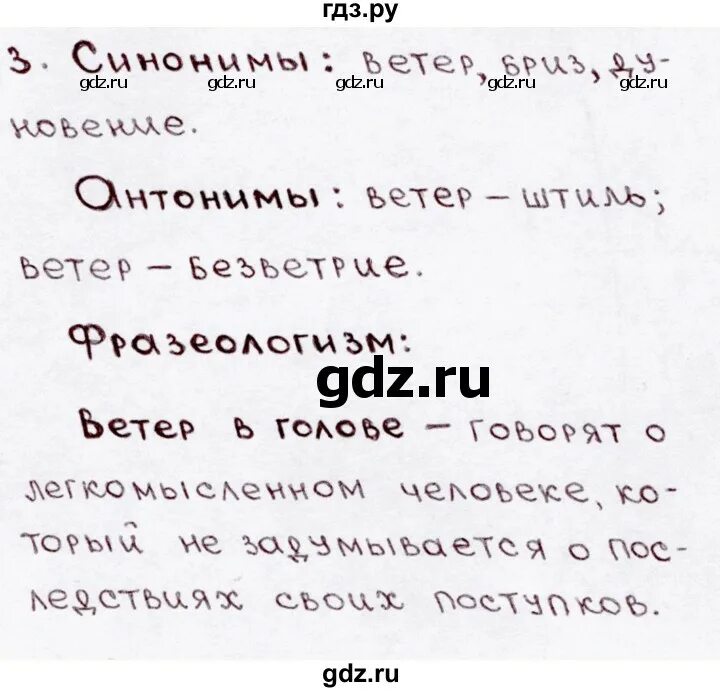 гдз.ру
3. Синонимы: ветер, бриз, ду-
gdz.ru gdz.ru gdz.ru gdz.ru
новение.
Антонимы: ветер – штиль;
ветер – безветрие.
Фразеологизм:
gdz.ru
Ветер в голове – говорят о
легкомысленном человеке, ко-
торый не задумывается о пос-
ледствиях своих поступков.
gdz.ru